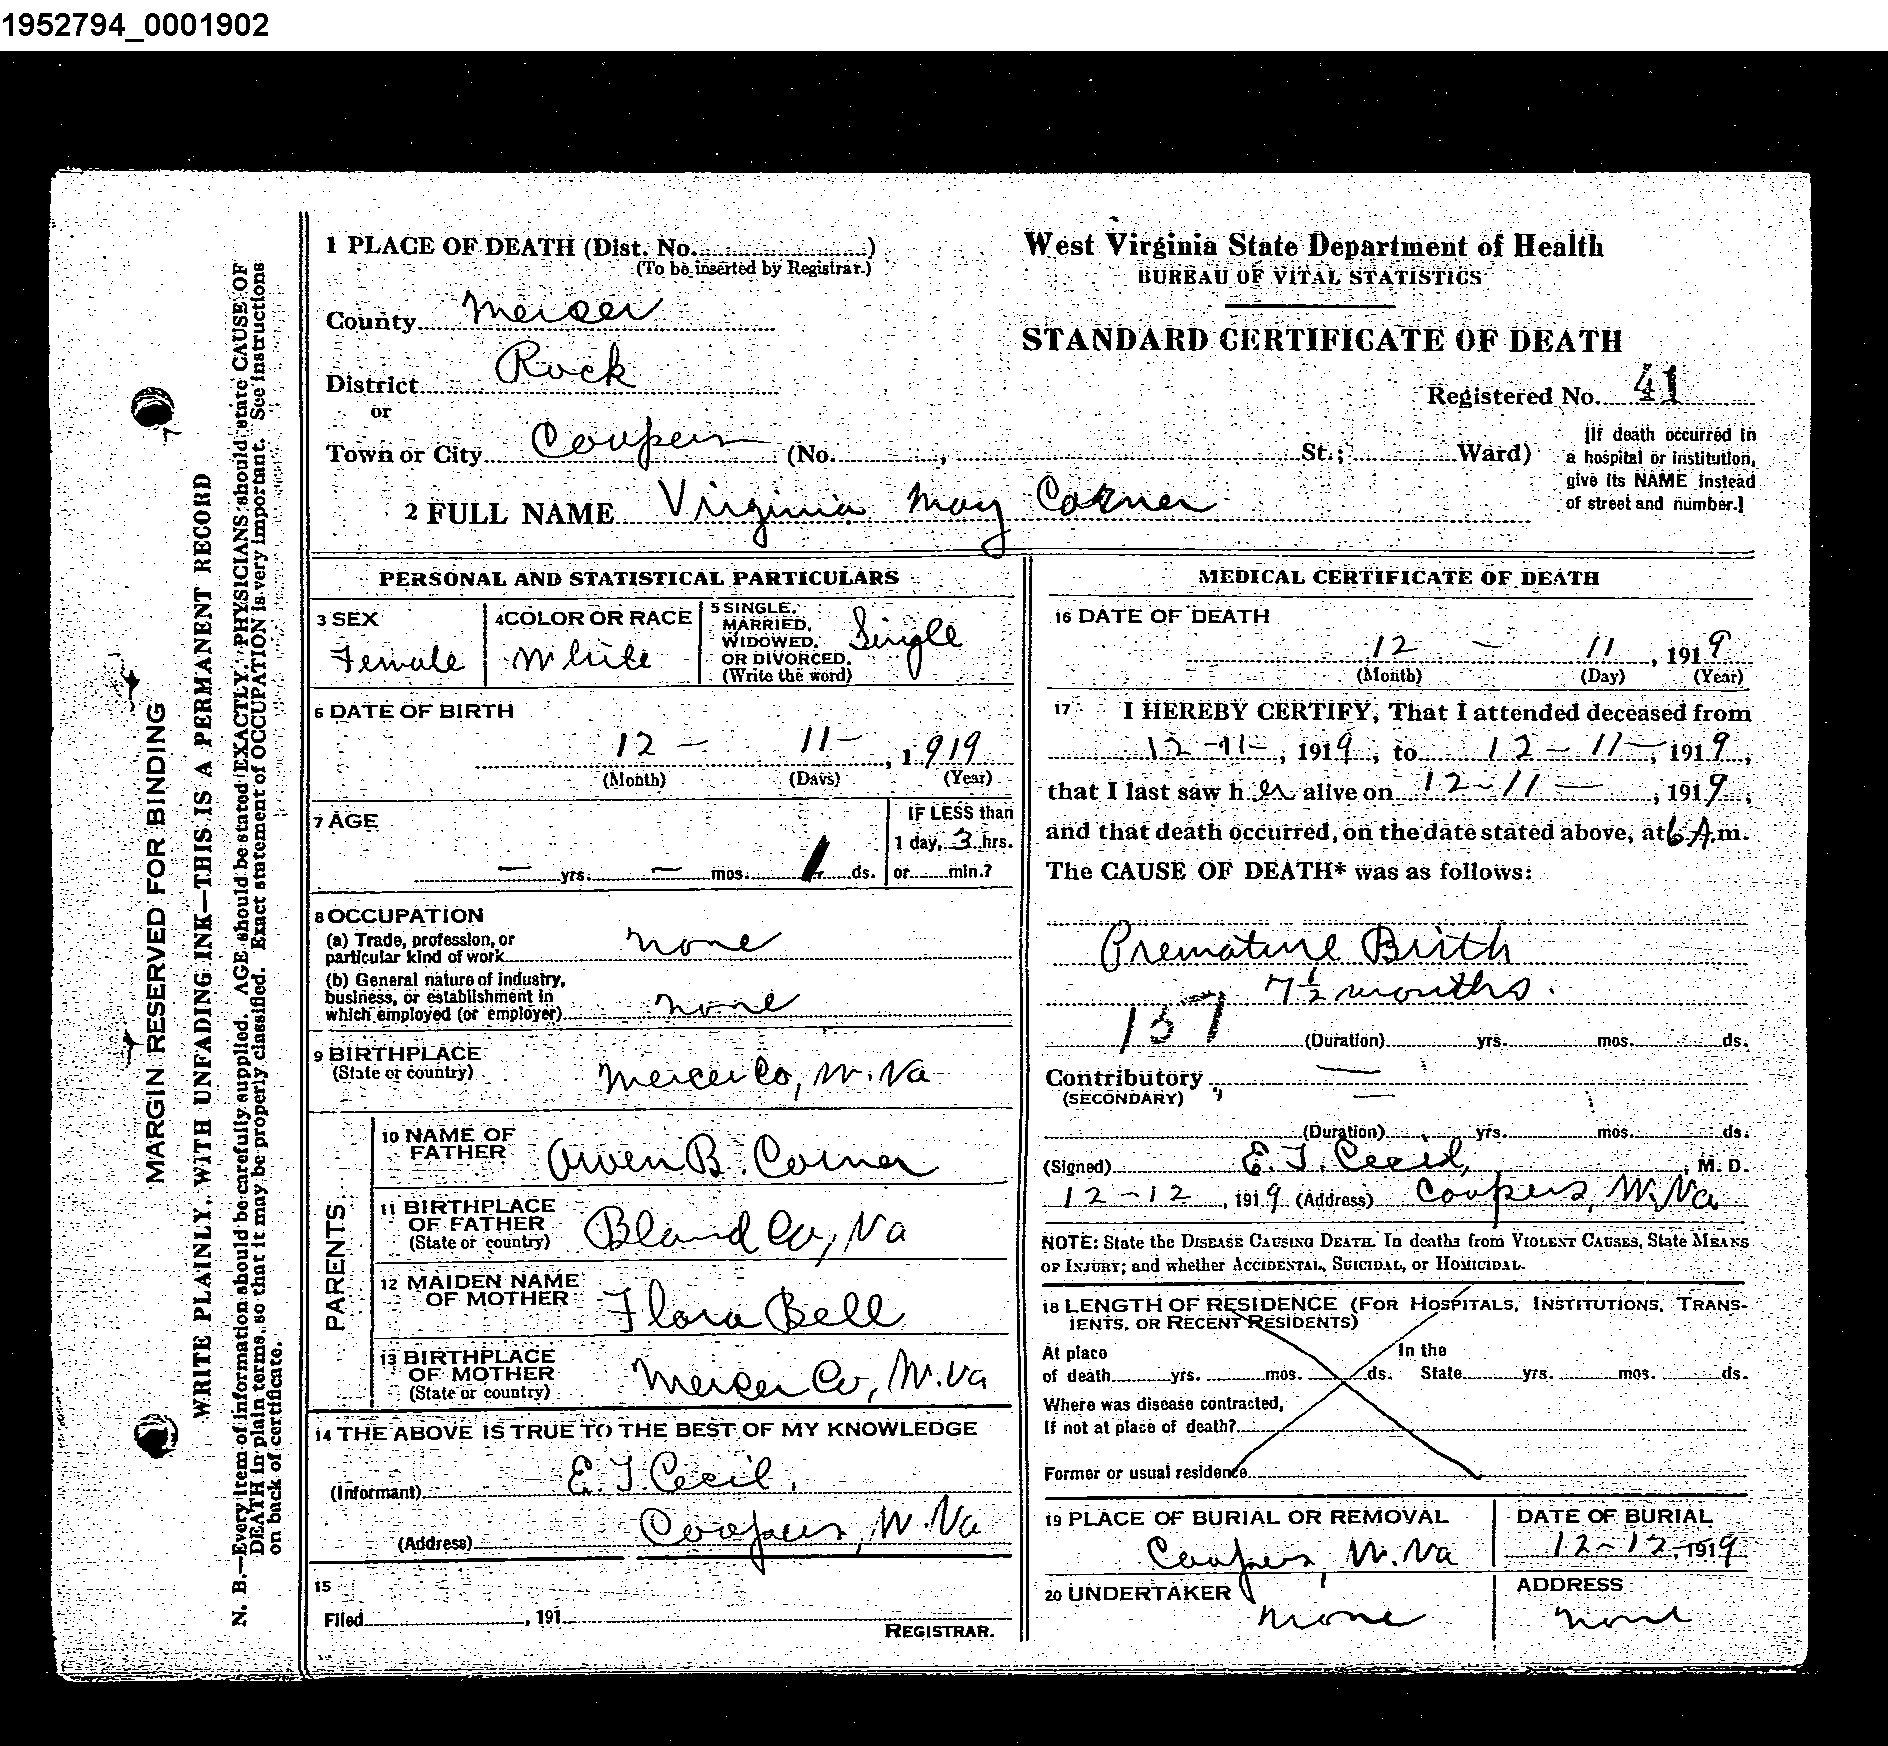 1952794_0001902
1 PLACE OF DEATH (Dist. No. )
(To be inserted by Registrar.)
County Mercer
District Rock
or
Town or City Coopers (No. , St.; Ward)
West Virginia State Department of Health
BUREAU OF VITAL STATISTICS
STANDARD CERTIFICATE OF DEATH
Registered No. 41
[If death occurred in
a hospital or institution,
give its NAME instead
of street and number.]
2 FULL NAME Virginia May Corner
PERSONAL AND STATISTICAL PARTICULARS
3 SEX
Female
4 COLOR OR RACE
White
5 SINGLE,
MARRIED,
WIDOWED,
OR DIVORCED.
(Write the word)
Single
6 DATE OF BIRTH
12 - 11 - , 1919
(Month) (Days) (Year)
7 AGE
— yrs. — mos. 1 ds.
IF LESS than
1 day, 3 hrs.
or min.?
8 OCCUPATION
(a) Trade, profession, or
particular kind of work none
(b) General nature of industry,
business, or establishment in
which employed (or employer) none
9 BIRTHPLACE
(State or country) Mercer Co, W. Va
PARENTS
10 NAME OF
FATHER Owen B. Corner
11 BIRTHPLACE
OF FATHER
(State or country) Bland Co, Va
12 MAIDEN NAME
OF MOTHER Flora Bell
13 BIRTHPLACE
OF MOTHER
(State or country) Mercer Co, W. Va
14 THE ABOVE IS TRUE TO THE BEST OF MY KNOWLEDGE
(Informant) E. T. Cecil,
(Address) Coopers, W. Va
15
Filed , 191
REGISTRAR.
MEDICAL CERTIFICATE OF DEATH
16 DATE OF DEATH
12 — 11 , 1919
(Month) (Day) (Year)
17 I HEREBY CERTIFY, That I attended deceased from
12 - 11 - , 1919 , to 12 - 11 - , 1919 ,
that I last saw h er alive on 12 - 11 — , 1919 ,
and that death occurred, on the date stated above, at 6 A.m.
The CAUSE OF DEATH* was as follows:
Premature Brith
7 1/2 months.
157
(Duration) yrs. mos. ds.
Contributory —
(SECONDARY) —
(Duration) yrs. mos. ds.
(Signed) E. T. Cecil, , M. D.
12 - 12 , 1919 (Address) Coopers, W. Va
NOTE: State the DISEASE CAUSING DEATH. In deaths from VIOLENT CAUSES, State MEANS
OF INJURY; and whether ACCIDENTAL, SUICIDAL, or HOMICIDAL.
18 LENGTH OF RESIDENCE (FOR HOSPITALS, INSTITUTIONS, TRANS-
IENTS, OR RECENT RESIDENTS)
At place
of death yrs. mos. ds.
In the
State yrs. mos. ds.
Where was disease contracted,
If not at place of death?
Former or usual residence
19 PLACE OF BURIAL OR REMOVAL
Coopers, W. Va
DATE OF BURIAL
12 - 12, 1919
20 UNDERTAKER
none
ADDRESS
none
MARGIN RESERVED FOR BINDING
WRITE PLAINLY, WITH UNFADING INK—THIS IS A PERMANENT RECORD
N. B.—Every item of information should be carefully supplied. AGE should be stated EXACTLY. PHYSICIANS should state CAUSE OF
DEATH in plain terms, so that it may be properly classified. Exact statement of OCCUPATION is very important. See instructions
on back of certificate.